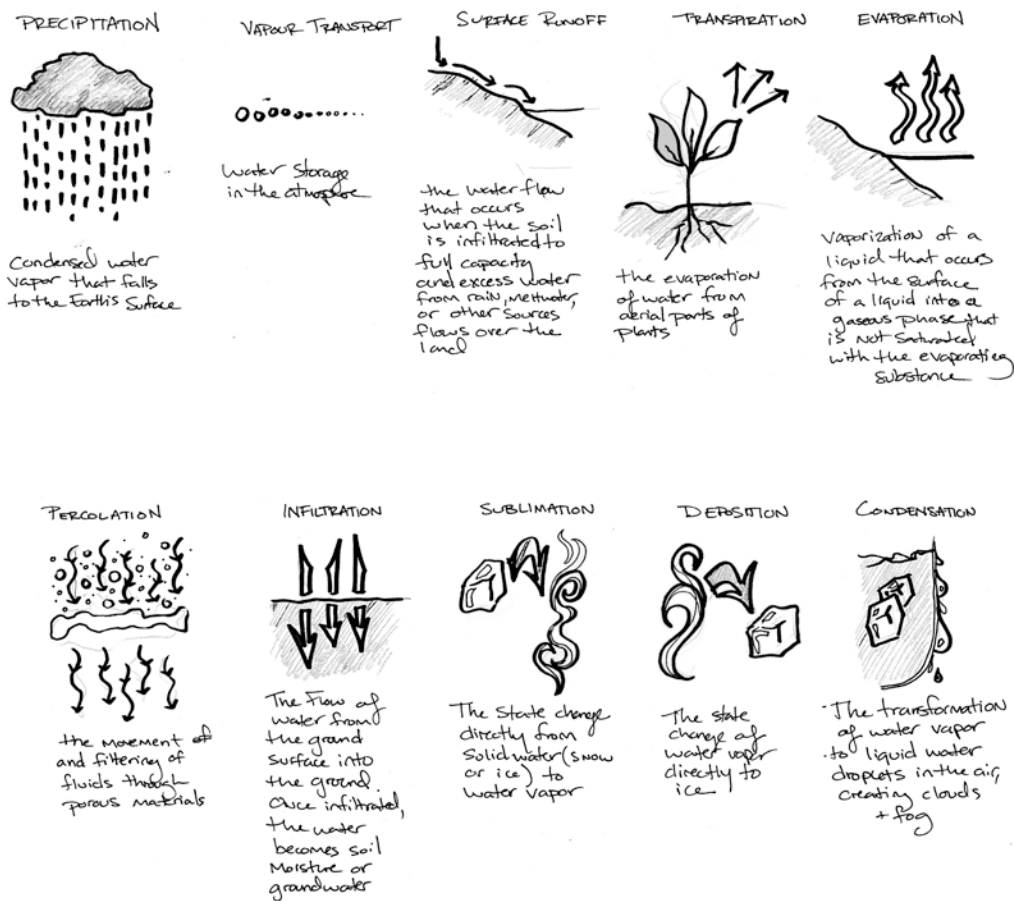 PRECIPITATION
Condensed water
vapor that falls
to the Earth's Surface
VAPOUR TRANSPORT
Water Storage
in the atmosphere
SURFACE RUNOFF
the water flow
that occurs
when the soil
is infiltrated to
full capacity
and excess water
from rain, meltwater,
or other sources
flows over the
land
TRANSPIRATION
the evaporation
of water from
aerial parts of
plants
EVAPORATION
Vaporization of a
liquid that occurs
from the surface
of a liquid into a
gaseous phase that
is not saturated
with the evaporating
substance
PERCOLATION
the movement of
and filtering of
fluids through
porous materials
INFILTRATION
The Flow of
water from
the ground
surface into
the ground.
Once infiltrated,
the water
becomes soil
Moisture or
groundwater
SUBLIMATION
The State change
directly from
Solid water (snow
or ice) to
water vapor
DEPOSITION
The state
change of
water vapor
directly to
ice
CONDENSATION
The transformation
of water vapor
to liquid water
droplets in the air,
creating clouds
+ fog